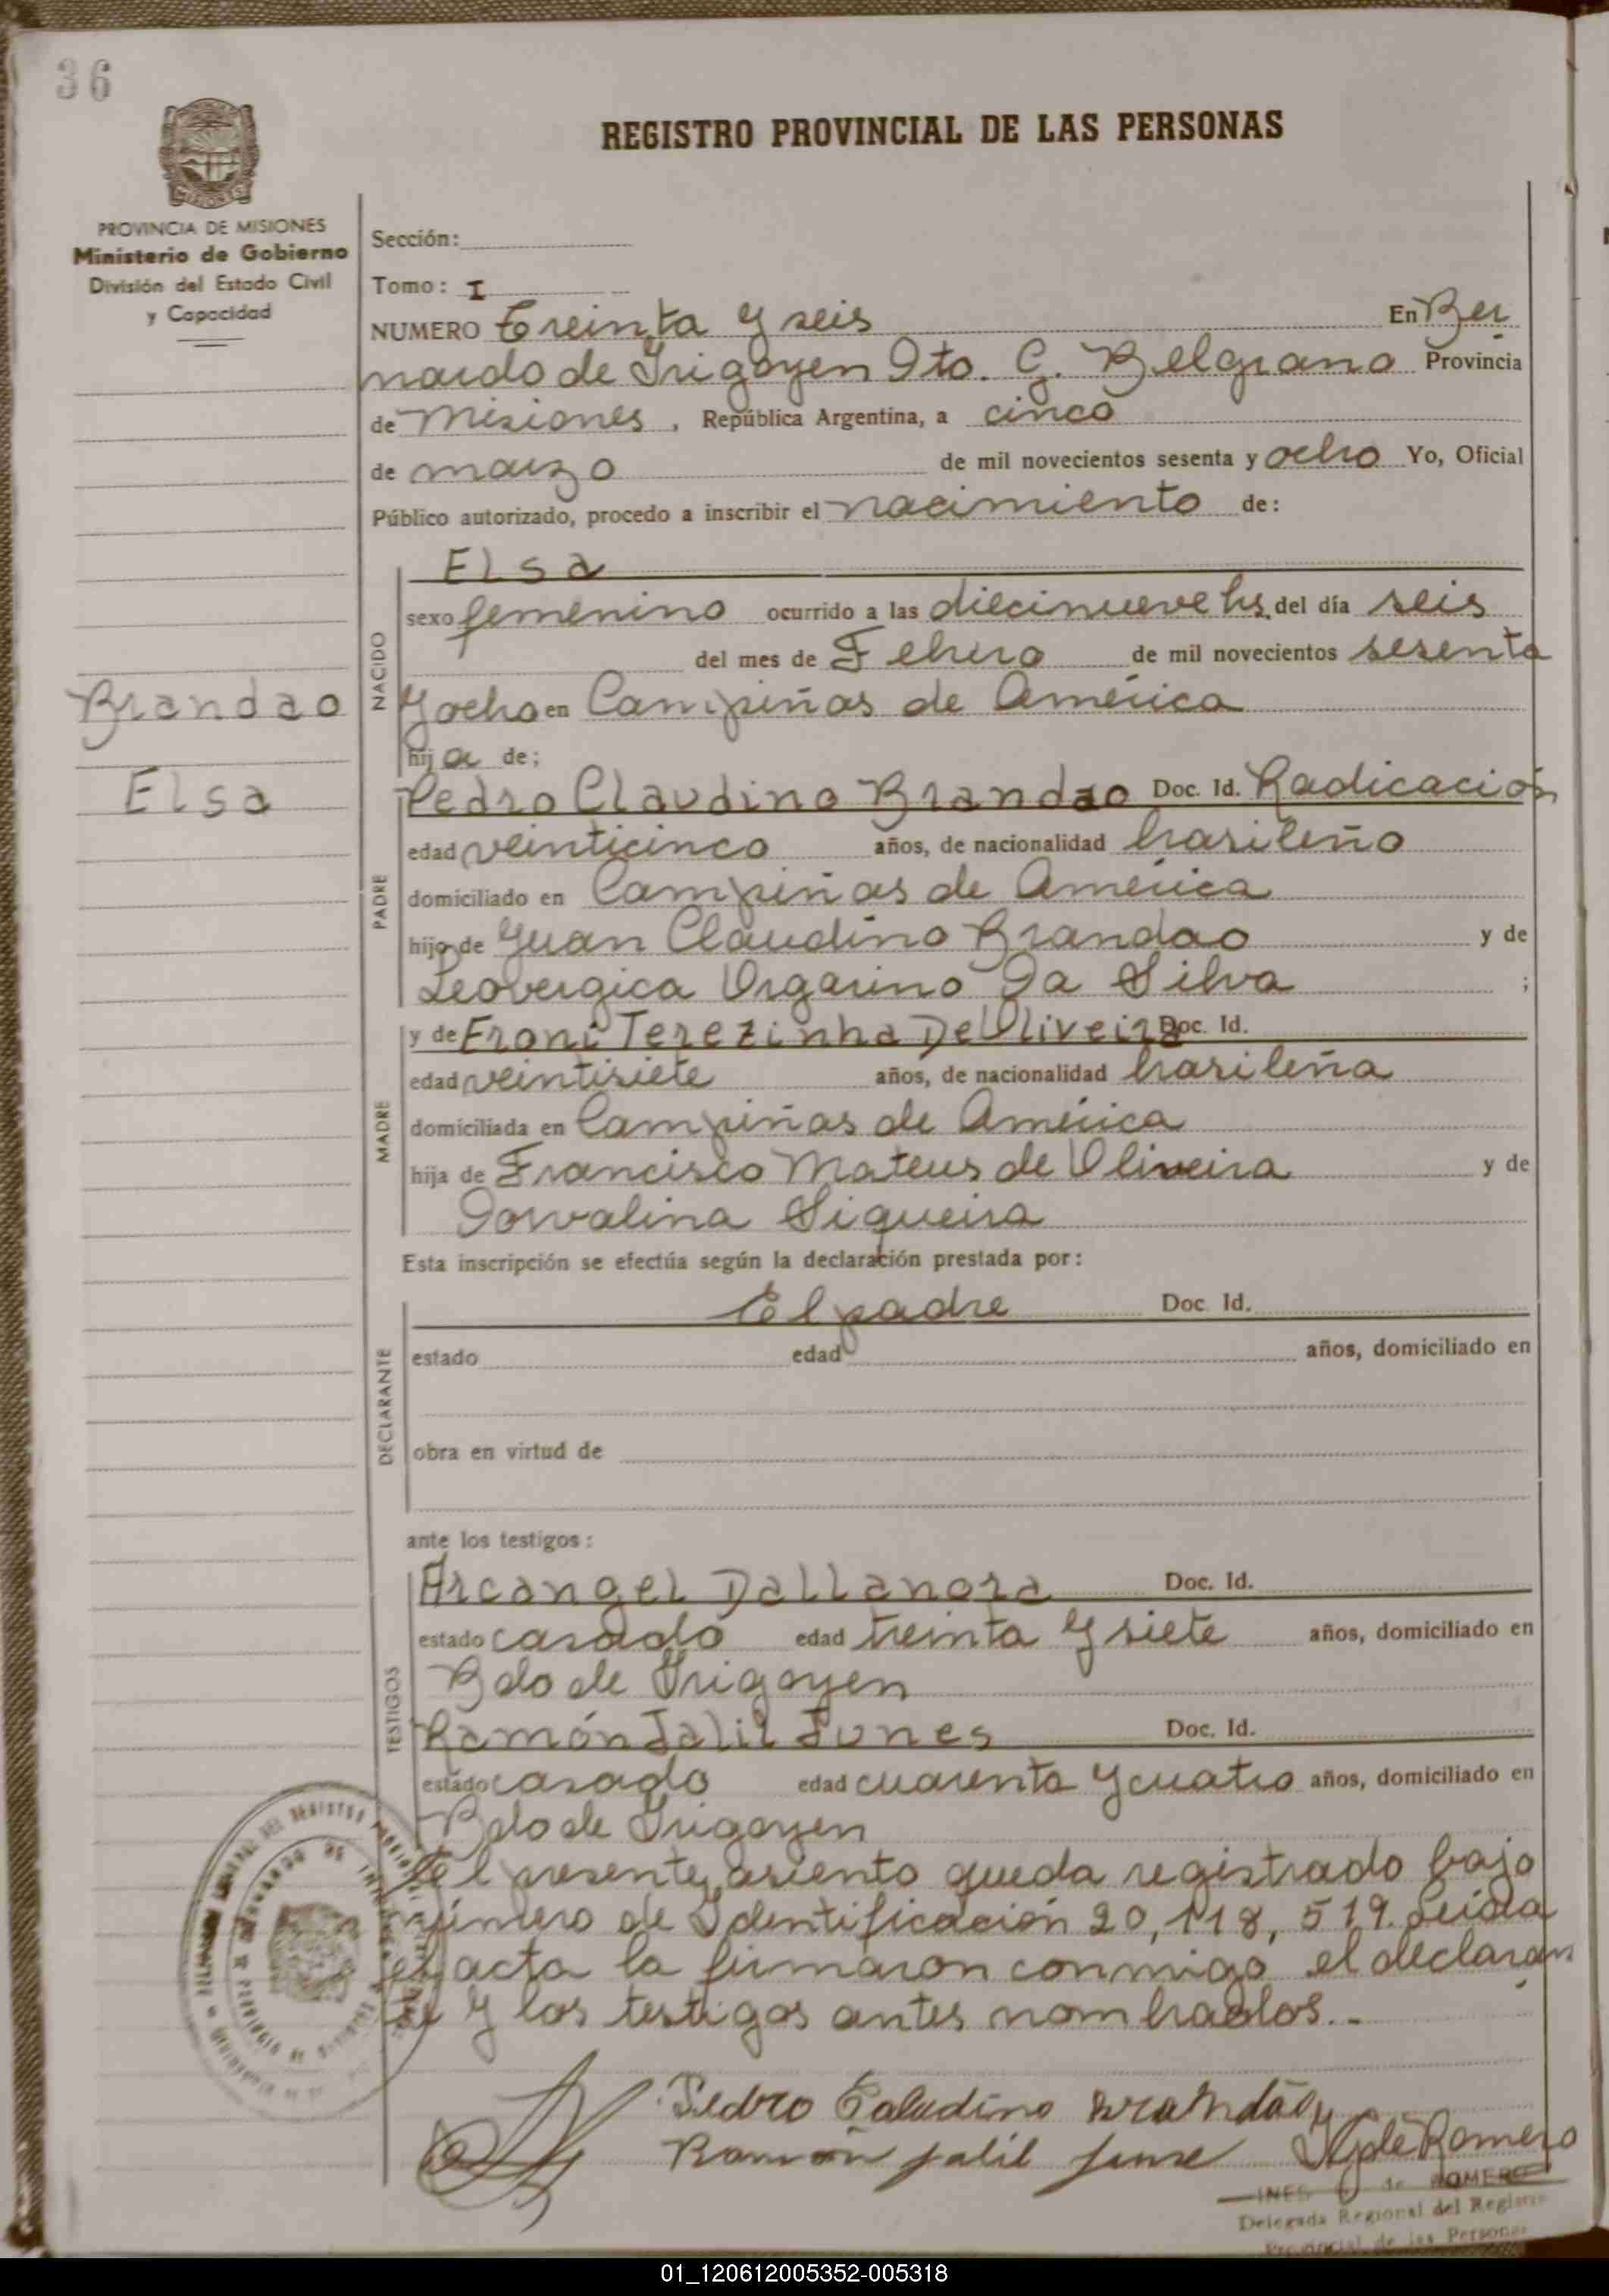 36
REGISTRO PROVINCIAL DE LAS PERSONAS
PROVINCIA DE MISIONES
Ministerio de Gobierno
División del Estado Civil
y Capacidad
Sección:
Tomo: I
NUMERO Treinta y seis En Ber
nardo de Irigoyen Dto. G. Belgrano Provincia
de Misiones, República Argentina, a cinco
de marzo de mil novecientos sesenta y ocho Yo, Oficial
Público autorizado, procedo a inscribir el nacimiento de:
NACIDO
Elsa
sexo femenino ocurrido a las diecinueve hs. del día seis
del mes de Febrero de mil novecientos sesenta
y ocho en Campiñas de América
hija de;
Brandao
Elsa
PADRE
Pedro Claudino Brandao Doc. Id. Radicación
edad veinticinco años, de nacionalidad brasileño
domiciliado en Campiñas de América
hijo de Juan Claudino Brandao y de
Leovergica Orgarino Da Silva ;
MADRE
y de Eroni Terezinha De Oliveira Doc. Id.
edad veintisiete años, de nacionalidad brasileña
domiciliada en Campiñas de América
hija de Francisco Mateus de Oliveira y de
Dorvalina Siqueira
Esta inscripción se efectúa según la declaración prestada por:
DECLARANTE
El padre Doc. Id.
estado edad años, domiciliado en
obra en virtud de
ante los testigos:
TESTIGOS
Arcangel Dallanora Doc. Id.
estado casado edad treinta y siete años, domiciliado en
Bdo de Irigoyen
Ramón Jalil Junes Doc. Id.
estado casado edad cuarenta y cuatro años, domiciliado en
Bdo de Irigoyen
El presente asiento queda registrado bajo
número de Identificación 20,118,519. Leída
el acta la firmaron conmigo el declaran
te y los testigos antes nombrados.-
Pedro Caludino Brandão
Ramón Jalil June
de Romero
INES de ROMERO
Delegada Regional del Registro
Provincial de las Personas
01_120612005352-005318